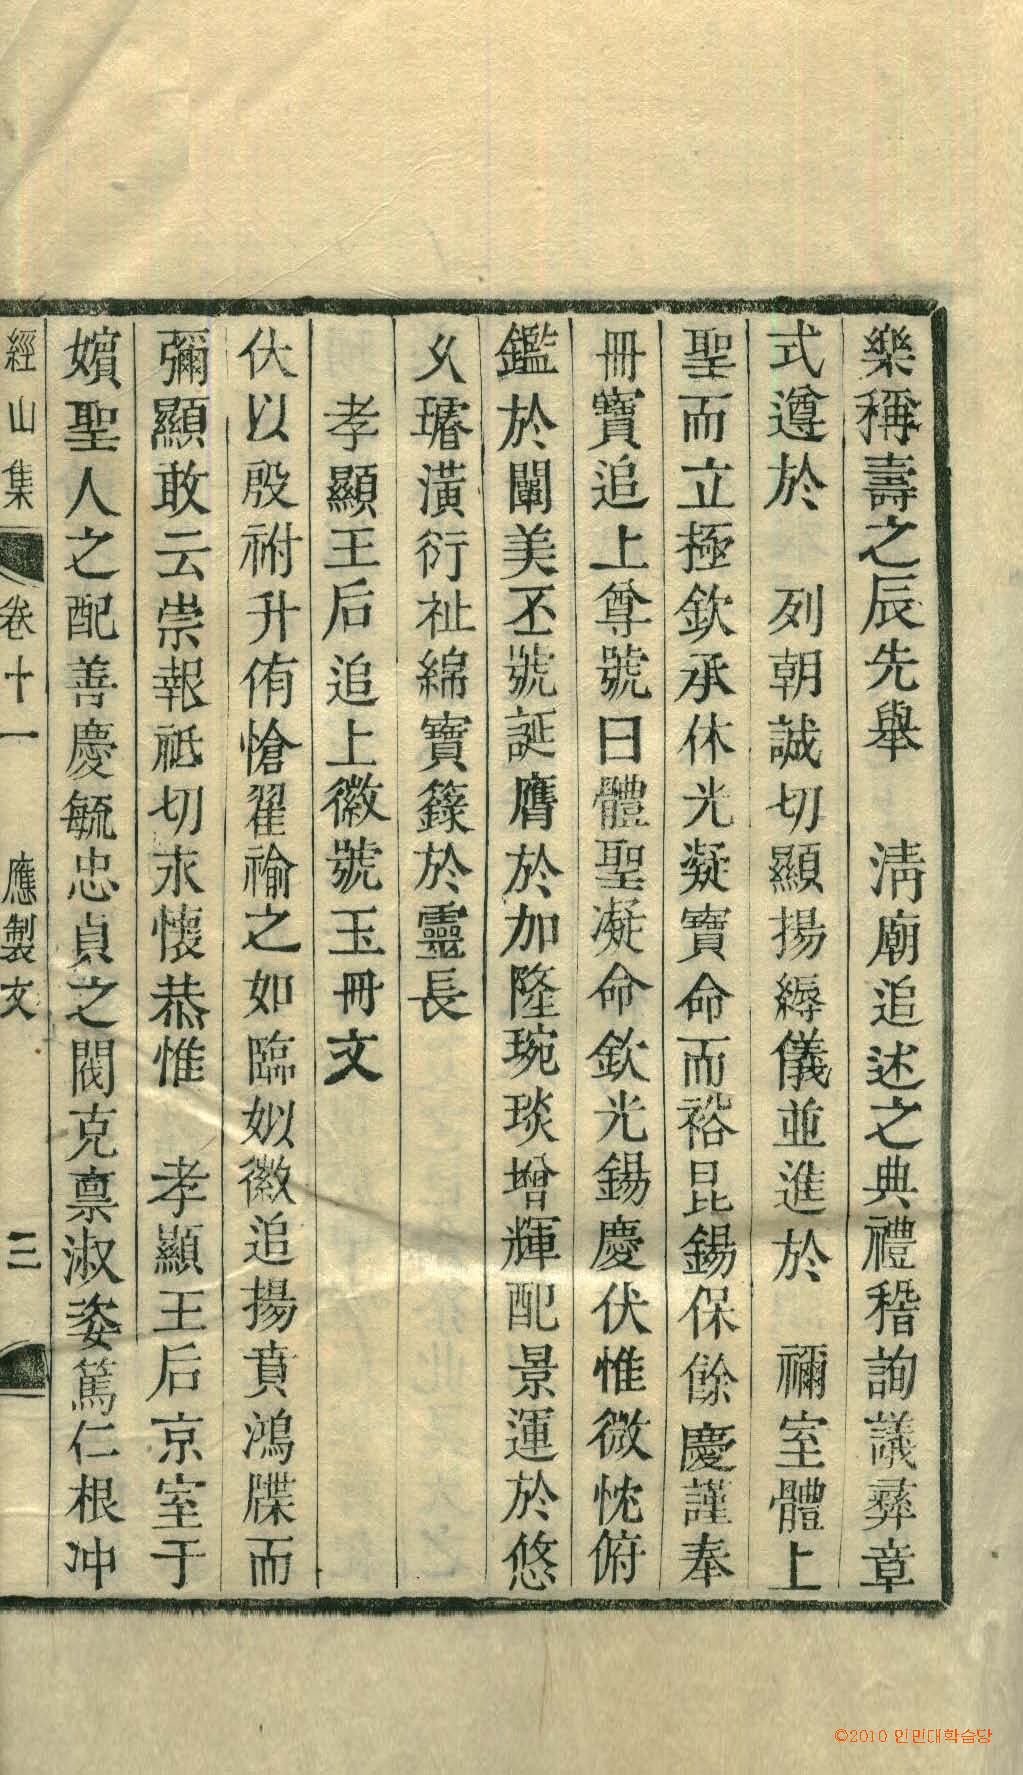 樂稱壽之辰先舉　淸廟追述之典禮稽詢議彛章
式遵於　列朝誠切顯揚縟儀並進於　禰室體上
聖而立極欽承休光凝寶命而裕昆錫保餘慶謹奉
冊寶追上尊號曰體聖凝命欽光錫慶伏惟微忱俯
鑑於闡美丕號誕膺於加隆琬琰增輝配景運於悠
久璿潢衍祉綿寶籙於靈長
孝顯王后追上徽號玉冊文
伏以殷祔升侑愴翟褕之如臨姒徽追揚賁鴻牒而
彌顯敢云崇報祗切永懷恭惟　孝顯王后京室于
嬪聖人之配善慶毓忠貞之閥克禀淑姿篤仁根冲
經山集　卷十一　應製文　三
©2010 인민대학습당